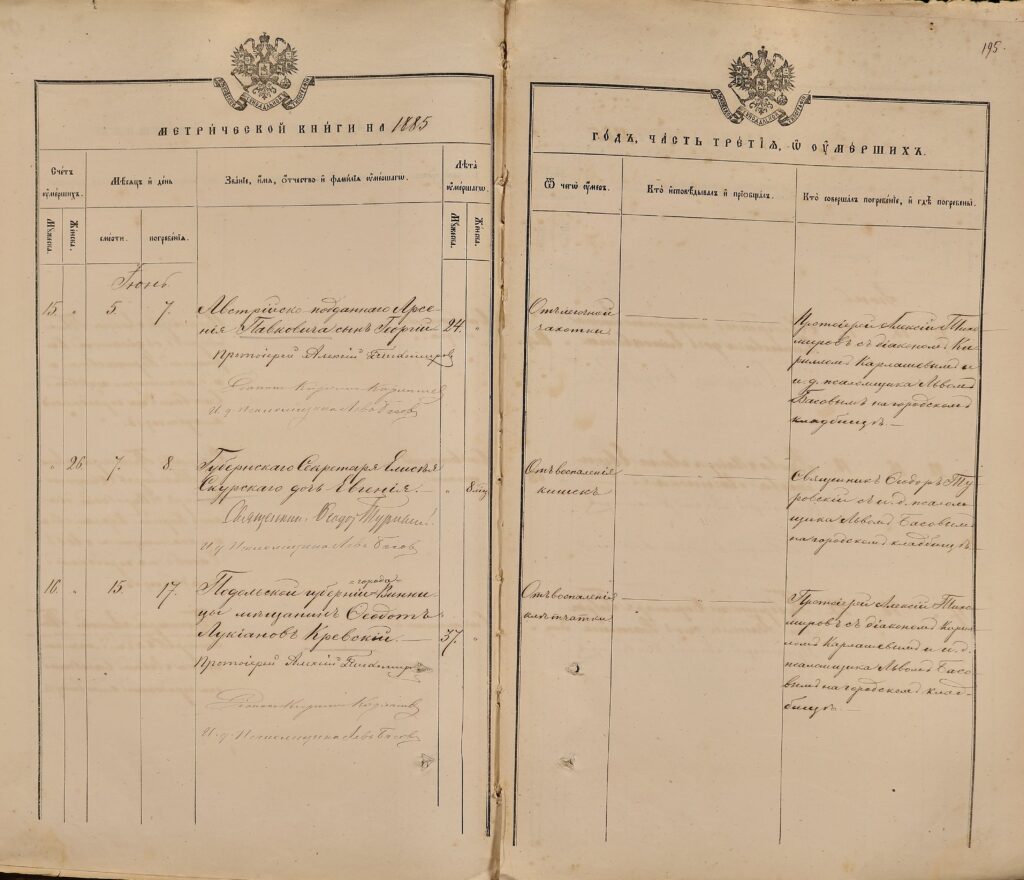 195.
МЕТРИ́ЧЕСКОЙ КНИ́ГИ НА 1885
ГО́ДЪ, ЧА́СТЬ ТРЕ́ТІЯ, Ѡ ОУ҆МЕ́РШИХЪ.
Сче́тъ оу҆ме́ршихъ.
Мꙋ́жеска.
Же́нска.
Мѣ́сяцъ и҆ де́нь
сме́рти.
погребе́нія.
Зва́ніе, и҆́мя, ѻ҆́тчество и҆ фами́лія оу҆ме́ршагѡ.
Лѣ́та оу҆ме́ршагѡ.
Мꙋ́жеска.
Же́нска.
Ѿ чегѡ̀ оу҆́меръ.
Кто̀ и҆сповѣ́дывалъ и҆ прїѡбща́лъ.
Кто̀ соверша́лъ погребе́ніе, и҆ гдѣ̀ погребены̀.
Іюнь
15. " 5. 7.
Австрійско-подданнаго Арсе-
нія Павковича сынъ Георгій
24. "
Протоіерей Алексій Тихомировъ
Діаконъ Кирилл Карлашев
И. д. Псаломщика Левъ Басов
Отъ легочной
чахотки
Протоіерей Алексій Тихо-
мировъ съ діакономъ Ки-
рилломъ Карлашевымъ и
и. д. псаломщика Львомъ
Басовымъ на городскомъ
кладбищѣ —
" 26. 7. 8.
Губернскаго Секретаря
Скурскаго дочь Евгенія. —
" 8 мц.
Священникъ Ѳеодоръ
И. д. Псаломщика Левъ Басов
Отъ воспаленія
кишекъ
Священникъ Ѳеодоръ Ту-
ровскій съ и. д. псалом-
щика Львомъ Басовымъ
на городскомъ кладбищѣ.
16. " 15. 17.
Подольской губерніи города Винни-
цы мѣщанинъ Ѳеодотъ
Лукіановъ Кревскій. —
37. "
Протоіерей Алексій Тихомиров
Діаконъ Кирилл Карлашев
И. д. Псаломщика Левъ Басов
Отъ воспаленія
клѣтчатки
Протоіерей Алексій Тихо-
мировъ съ діакономъ Кирил-
ломъ Карлашевымъ и и. д.
псаломщика Львомъ Басо-
вымъ на городскомъ клад-
бищѣ. —